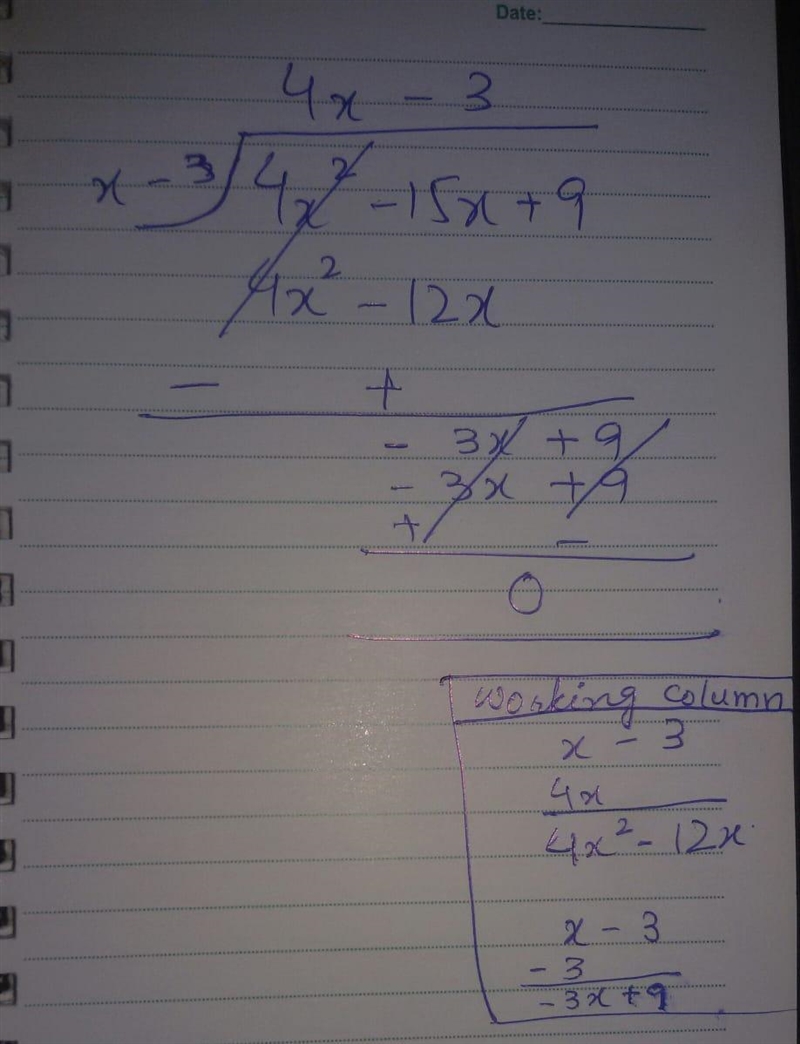 Date:
4x - 3
x - 3 4x² - 15x + 9
4x² - 12x
- +
- 3x + 9
- 3x + 9
+ -
0
working column
x - 3
4x
4x² - 12x
x - 3
- 3
- 3x + 9